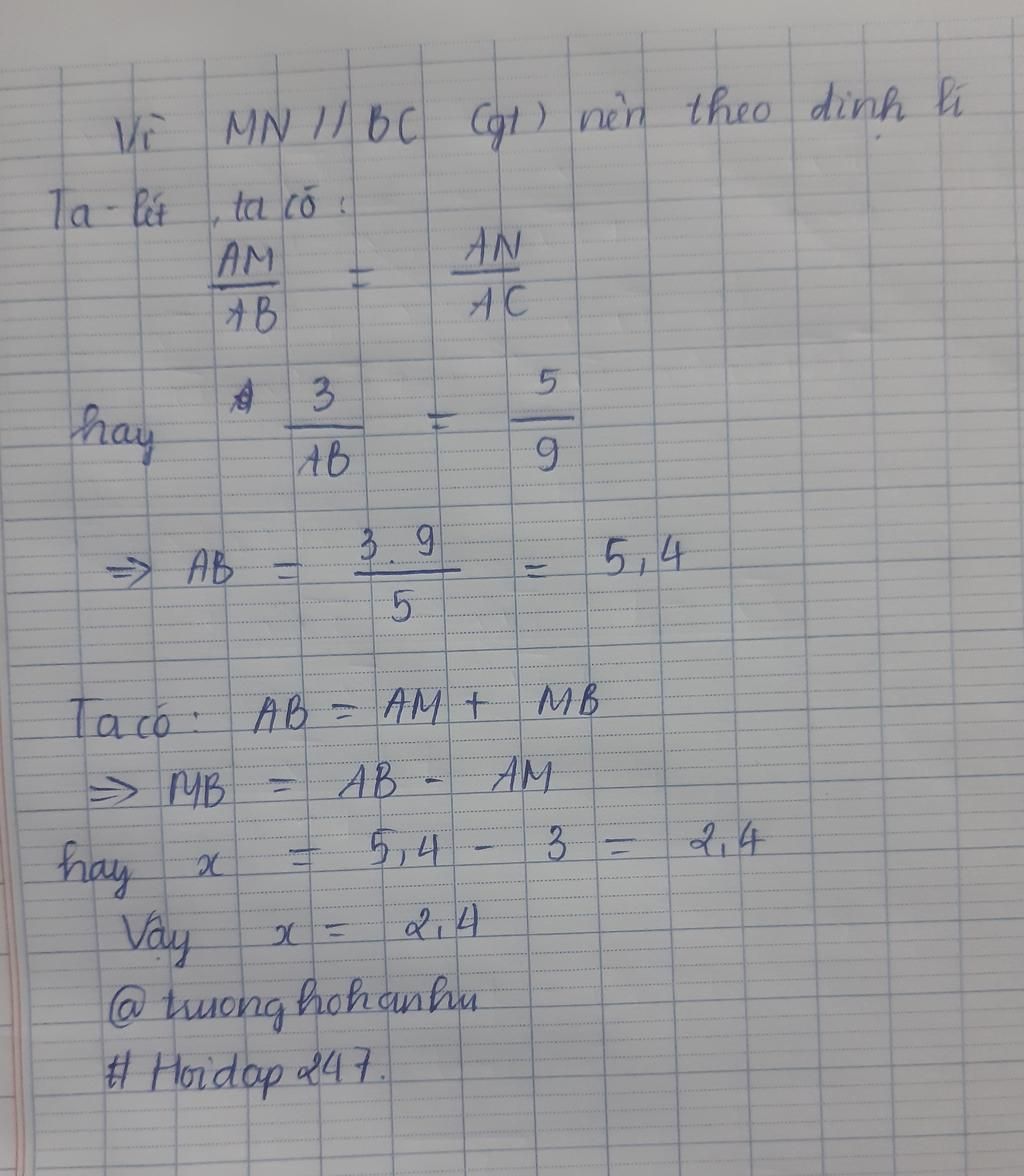 Vì MN // BC (gt) nên theo định lí
Ta-lét, ta có:
AM/AB = AN/AC
hay 3/AB = 5/9
⇒ AB = 3.9/5 = 5,4
Ta có: AB = AM + MB
⇒ MB = AB - AM
hay x = 5,4 - 3 = 2,4
Vậy x = 2,4
@truonghohanhu
# Hoidap247.